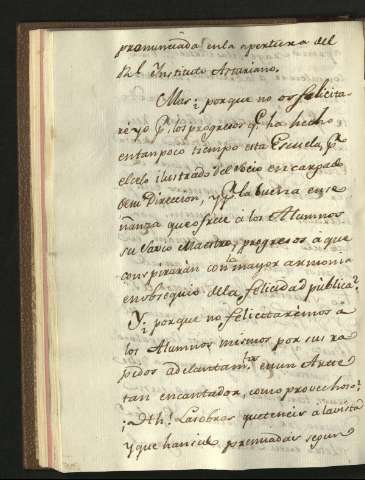 pronunciada en la apertura del
Rl. Instituto Asturiano.
Mas; porque no os felicita-
re yo p.r los progresos q.e ha hecho
entan poco tiempo esta Escuela, p.r
el celo ilustrado del Socio encargado
desu Direccion, y p.r la buena ense
ñanza que ofrece a los Alumnos
su Sabio Maestro, progresos à que
conspirarán con la mayor armonia
en obsequio dela felicidad publica?
Y; porque no felicitaremos à
los Alumnos mismos por sus ra
pidos adelantam.tos en un Arte
tan encantador, como provechoso?
¡Oh! Las obras que teneis a la vista
y que han sido premiadas segun